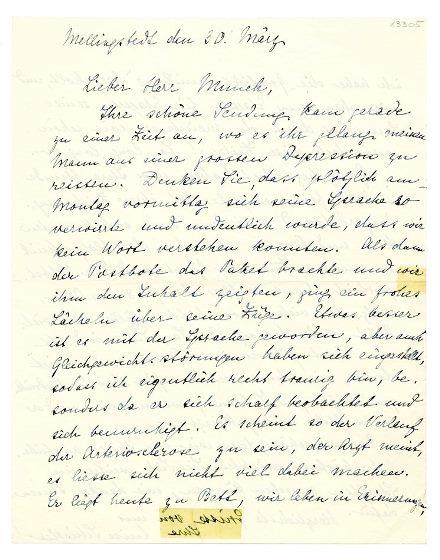 13305
Mellingstedt den 30. März
Lieber Herr Munch,
Ihre schöne Sendung kam gerade
zu einer Zeit an, wo es ihr gelang meinen
Mann aus einer grossen Depression zu
reissen. Denken Sie, dass plötzlich am
Montag vormittag sich seine Sprache so
verwirrte und undeutlich wurde, dass wir
kein Wort verstehen konnten. Als dann
der Postbote das Paket brachte und wir
ihm den Inhalt zeigten, ging ein frohes
Lächeln über seine Züge. Etwas besser
ist es mit der Sprache geworden, aber auch
Gleichgewichtsstörungen haben sich eingestellt,
sodass ich eigentlich recht traurig bin, be-
sonders da er sich scharf beobachtet und
sich beunruhigt. Es scheint so der Verlauf
der Arteriosclerose zu sein, der Arzt meint,
es liesse sich nicht viel dabei machen.
Er liegt heute zu Bett, wir leben in Erinnerungen,